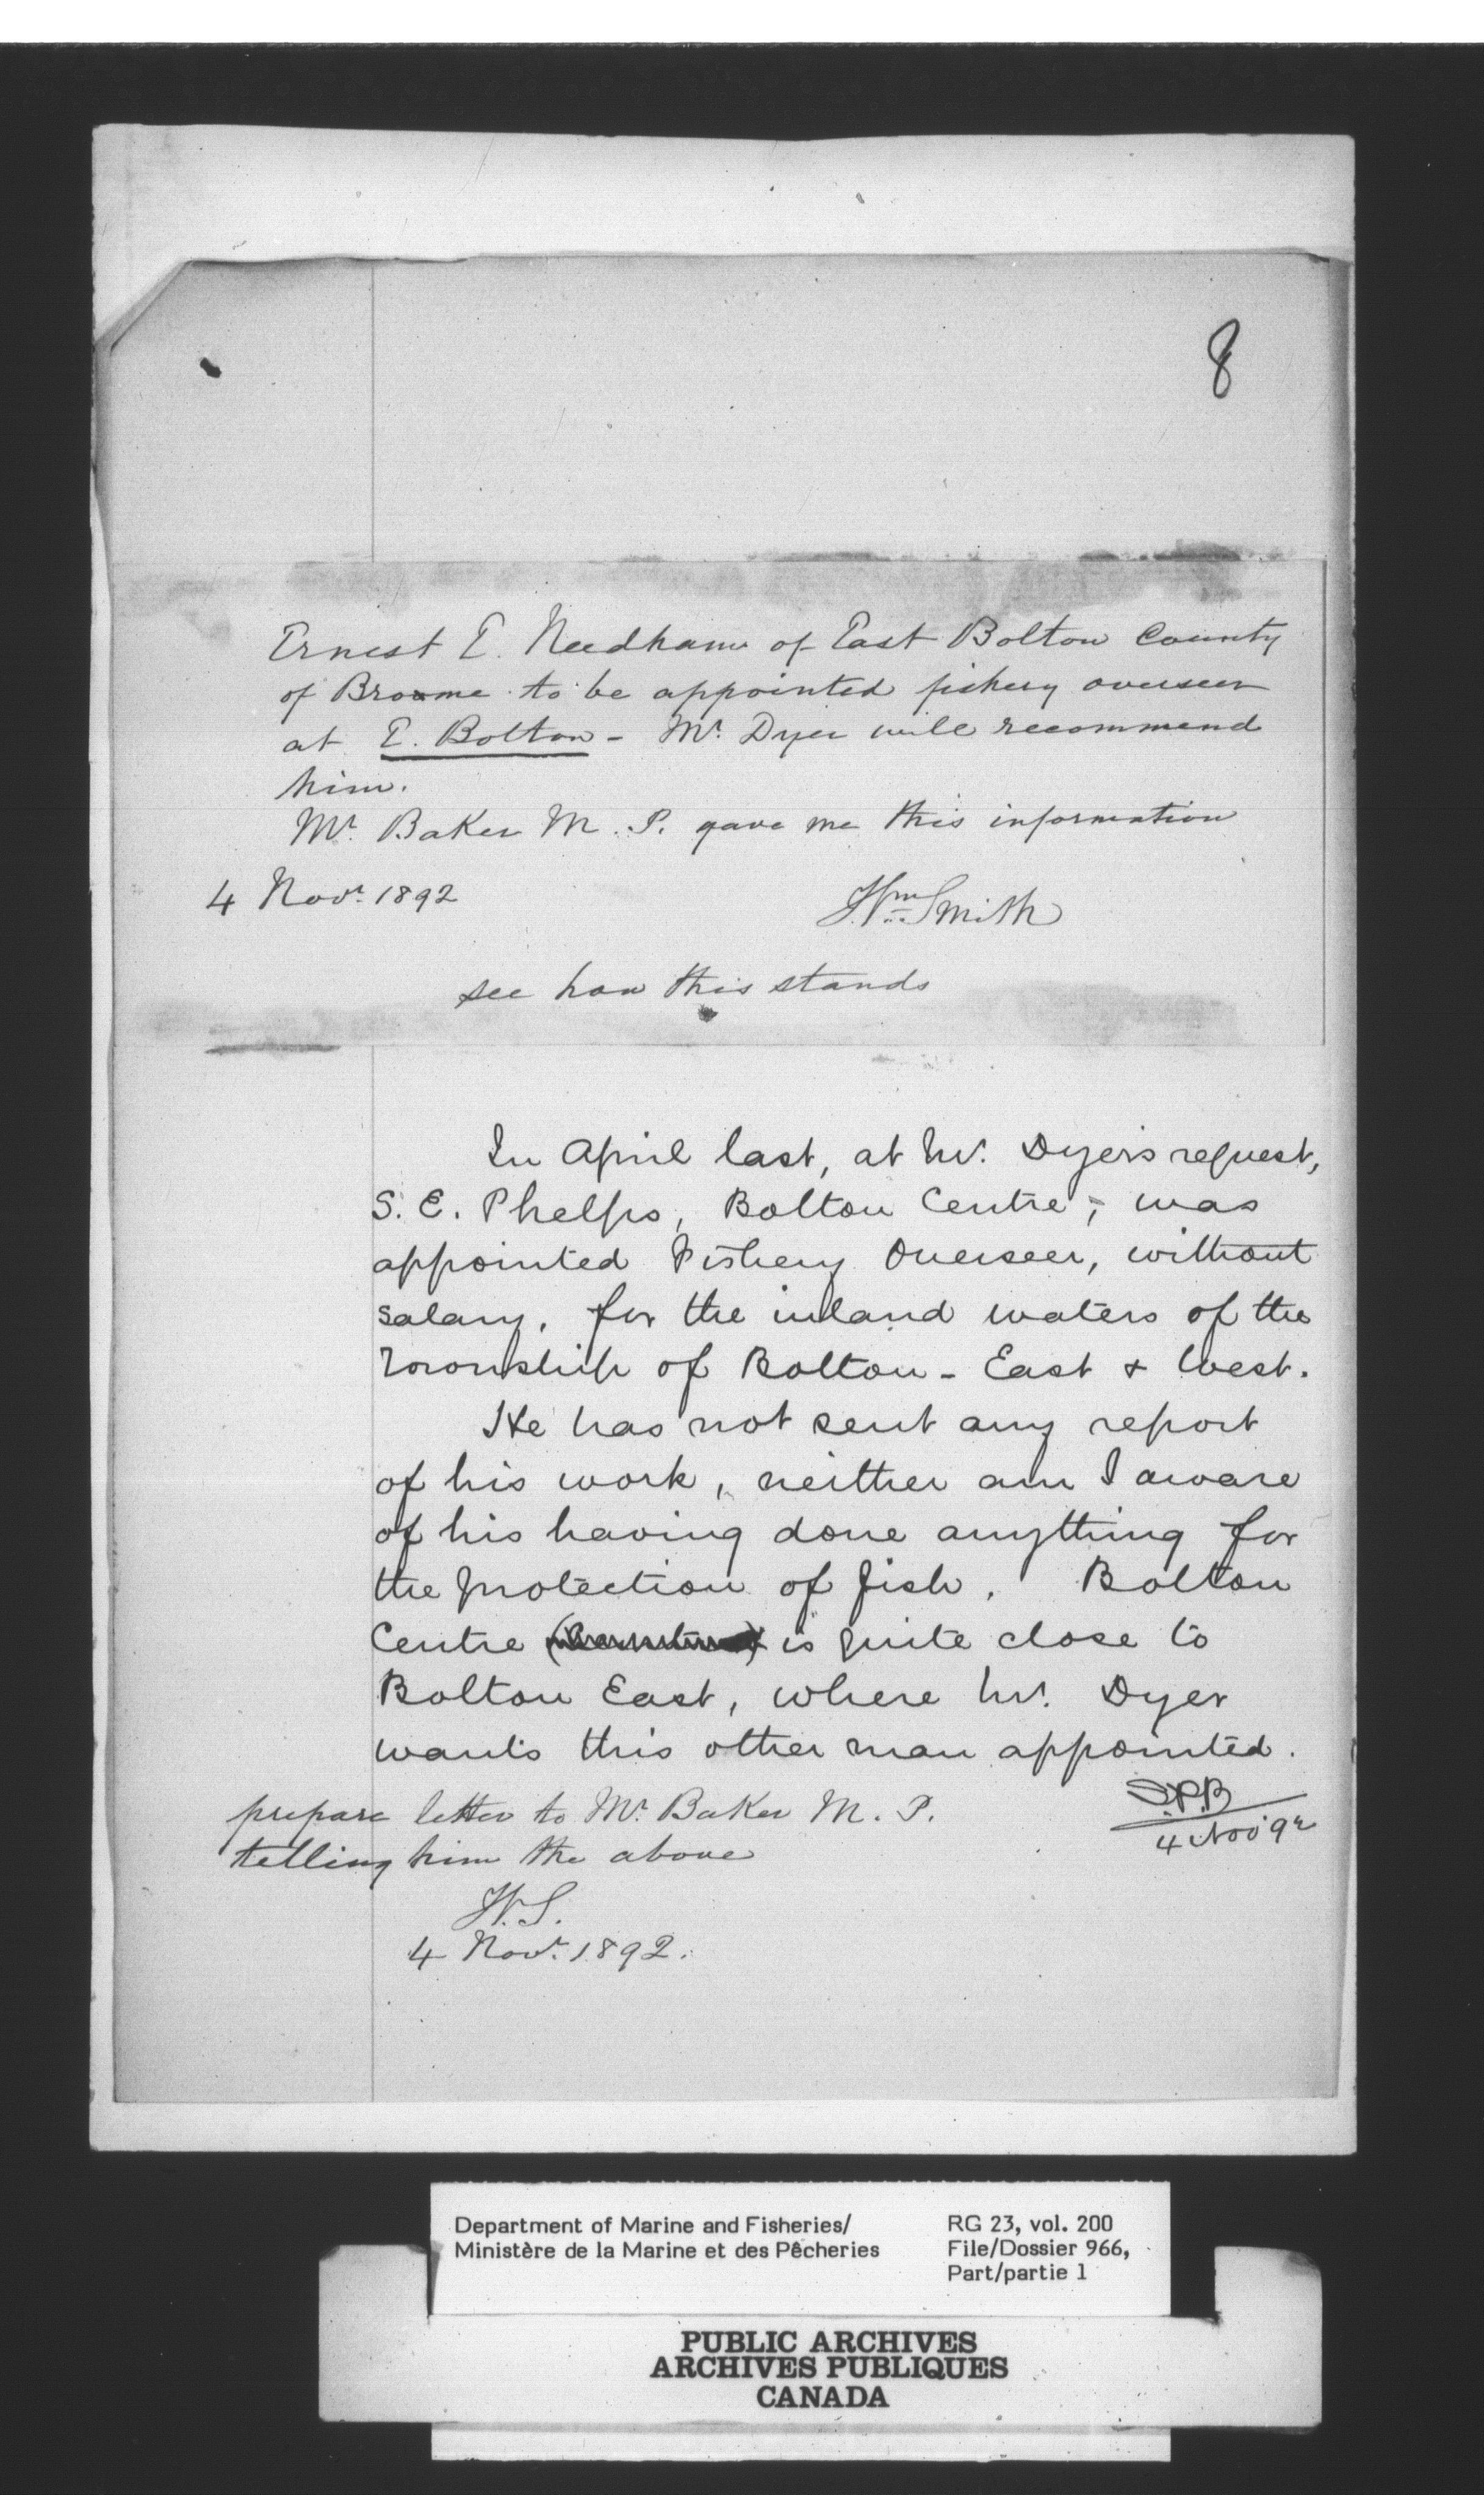 8
Ernest E. Needham of East Bolton County
of Brome to be appointed fishery overseer
at E. Bolton - Mr. Dyer will recommend
him.
Mr. Baker M. P. gave me this information
4 Novr. 1892
Wm. Smith
see how this stands
In April last, at Mr. Dyer's request,
S. E. Phelps, Bolton Centre, was
appointed Fishery Overseer, without
salary, for the inland waters of the
Township of Bolton - East & West.
He has not sent any report
of his work, neither am I aware
of his having done anything for
the protection of fish. Bolton
Centre is quite close to
Bolton East, where Mr. Dyer
wants this other man appointed.
S.P.B
4 Nov 92
prepare letter to Mr. Baker M. P.
telling him the above
W.S.
4 Novr. 1892.
Department of Marine and Fisheries/
Ministère de la Marine et des Pêcheries
RG 23, vol. 200
File/Dossier 966,
Part/partie 1
PUBLIC ARCHIVES
ARCHIVES PUBLIQUES
CANADA